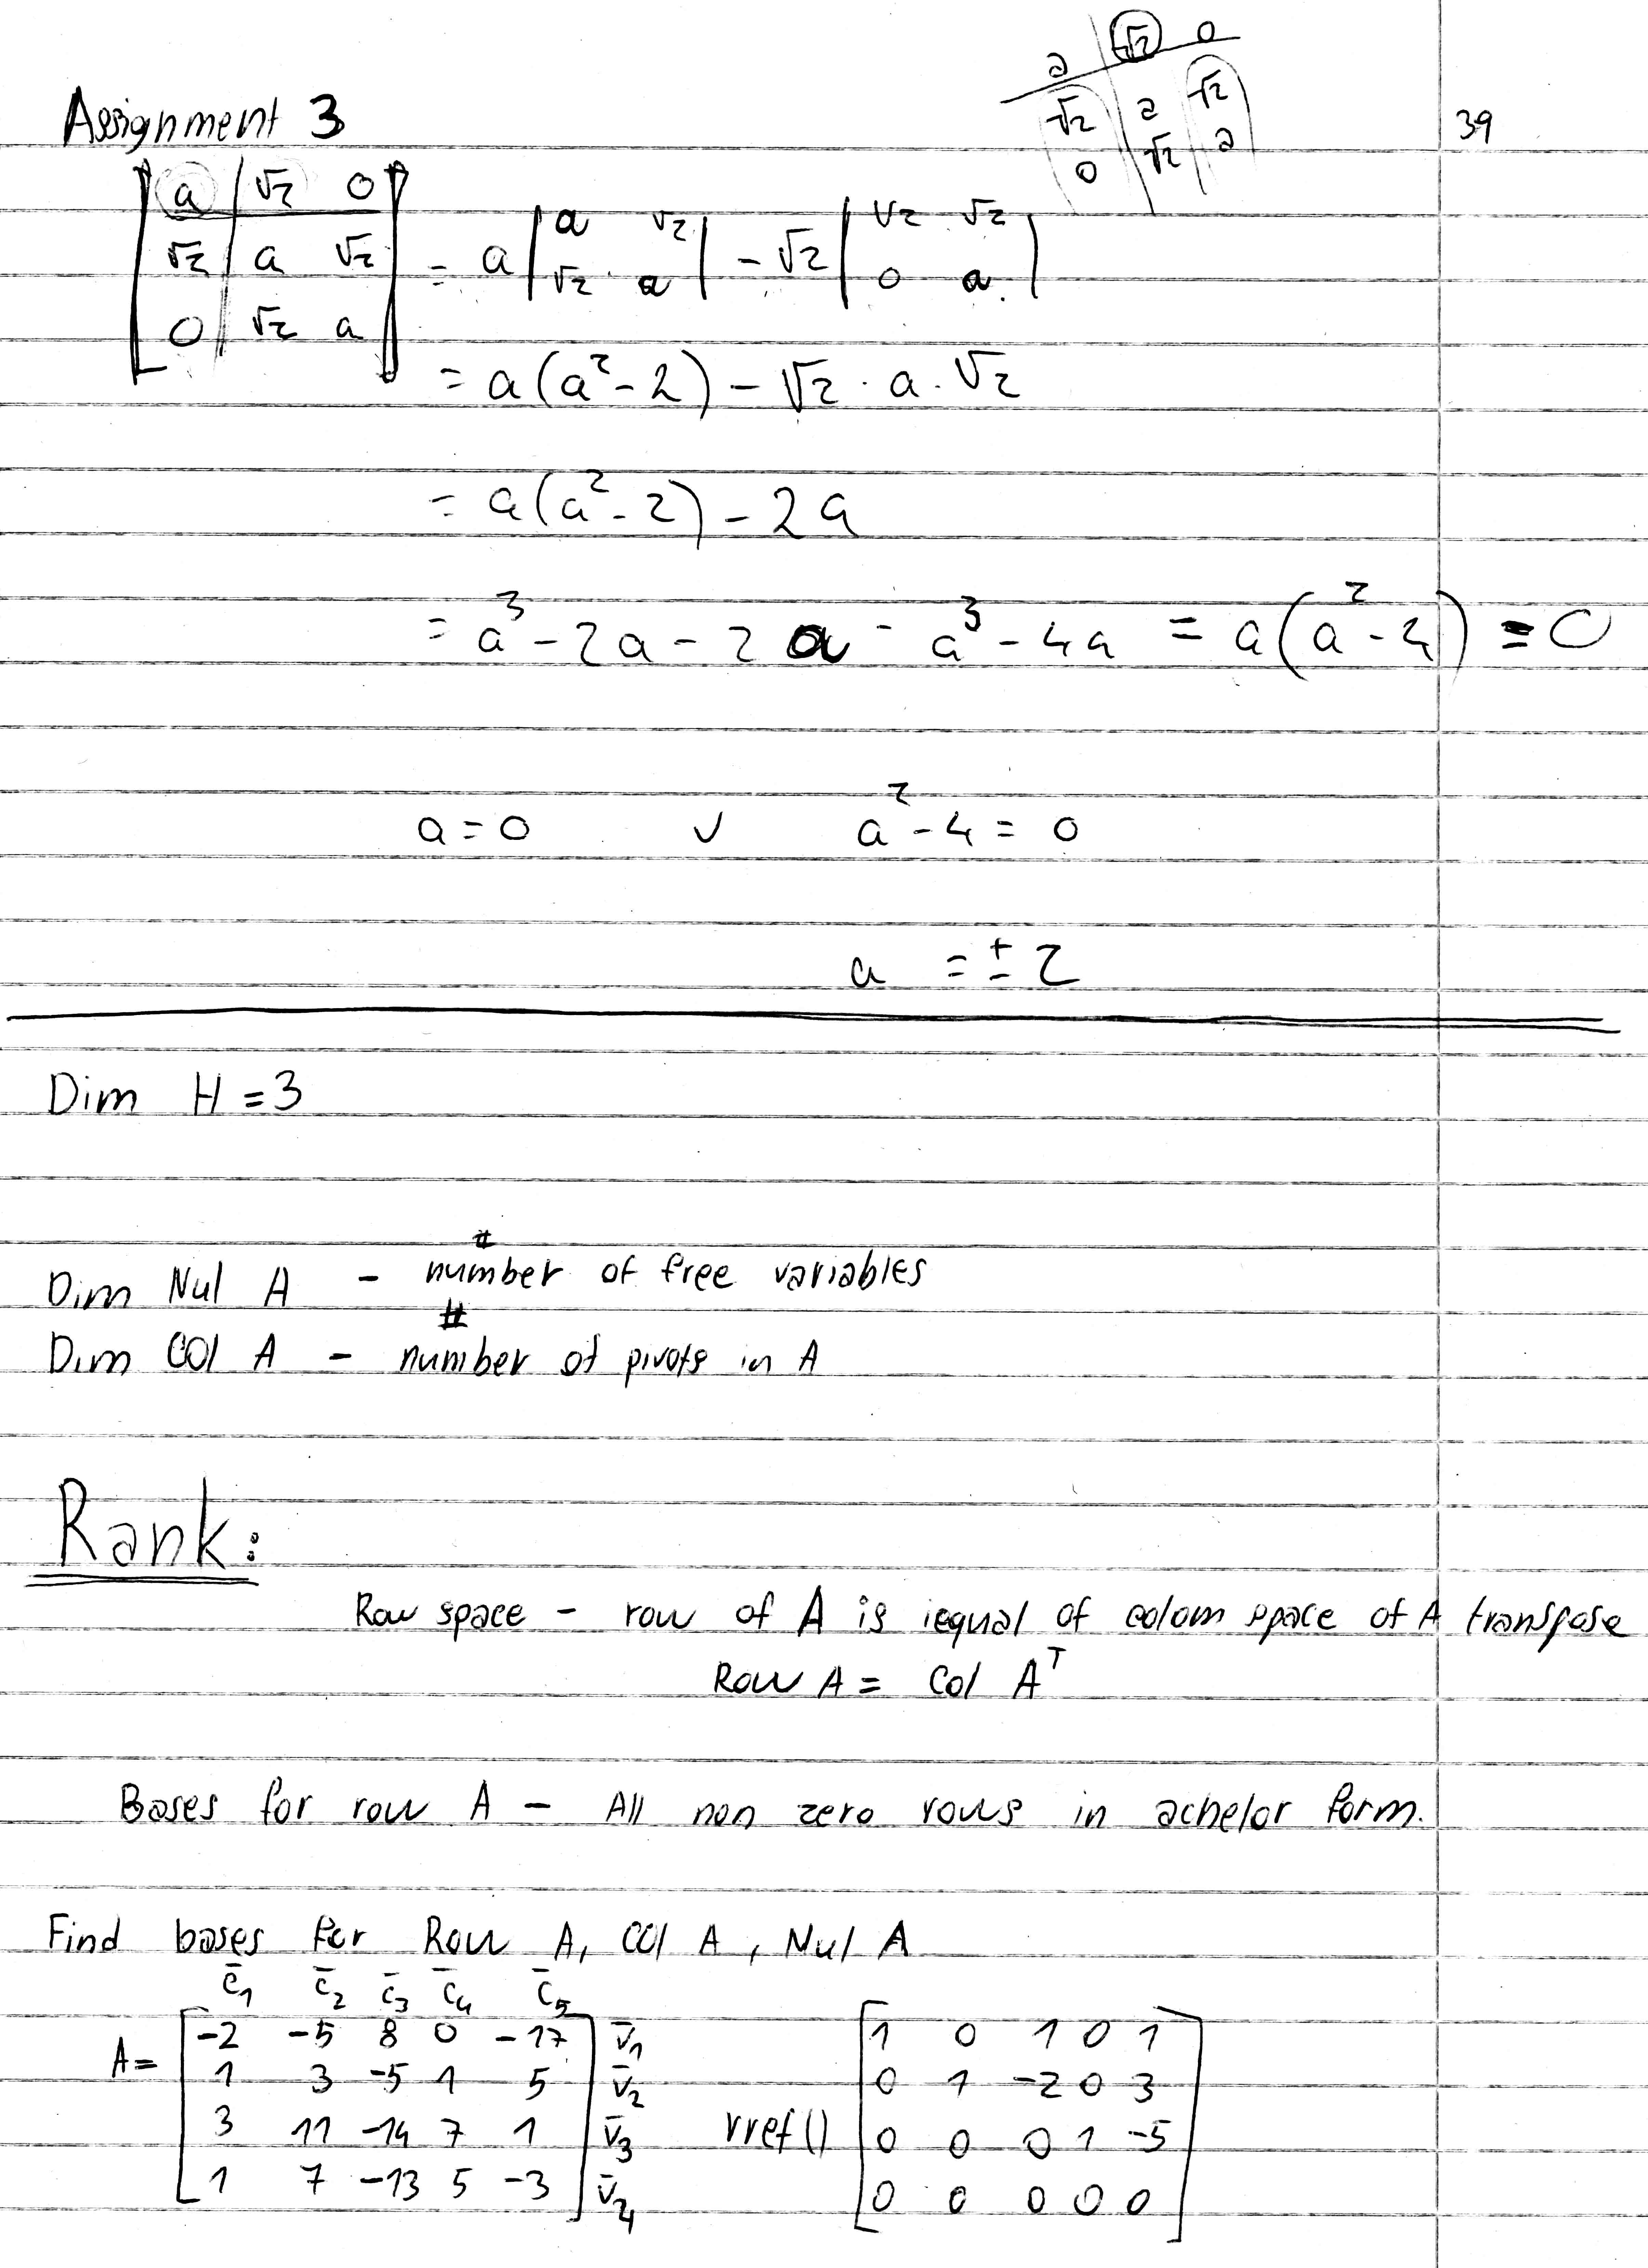 a √2 0
√2 a √2
0 √2 a
Assignment 3
39
a √2 0
√2 a √2
0 √2 a
= a | a √2 ; √2 a | - √2 | √2 √2 ; 0 a |
= a(a² - 2) - √2 · a · √2
= a(a² - 2) - 2a
= a³ - 2a - 2a = a³ - 4a = a(a² - 4) = 0
a = 0 ∨ a² - 4 = 0
a = ± 2
Dim H = 3
#
Dim Nul A - number of free variables
#
Dim Col A - number of pivots in A
Rank:
Row space - row of A is iequal of colom space of A transpose
Row A = Col Aᵀ
Bases for row A - All non zero rows in achelor form.
Find bases for Row A, Col A, Nul A
c̄₁ c̄₂ c̄₃ c̄₄ c̄₅
A = -2 -5 8 0 -17 v̄₁
1 3 -5 1 5 v̄₂
3 11 -14 7 1 v̄₃
1 7 -13 5 -3 v̄₄
rref()
1 0 1 0 1
0 1 -2 0 3
0 0 0 1 -5
0 0 0 0 0